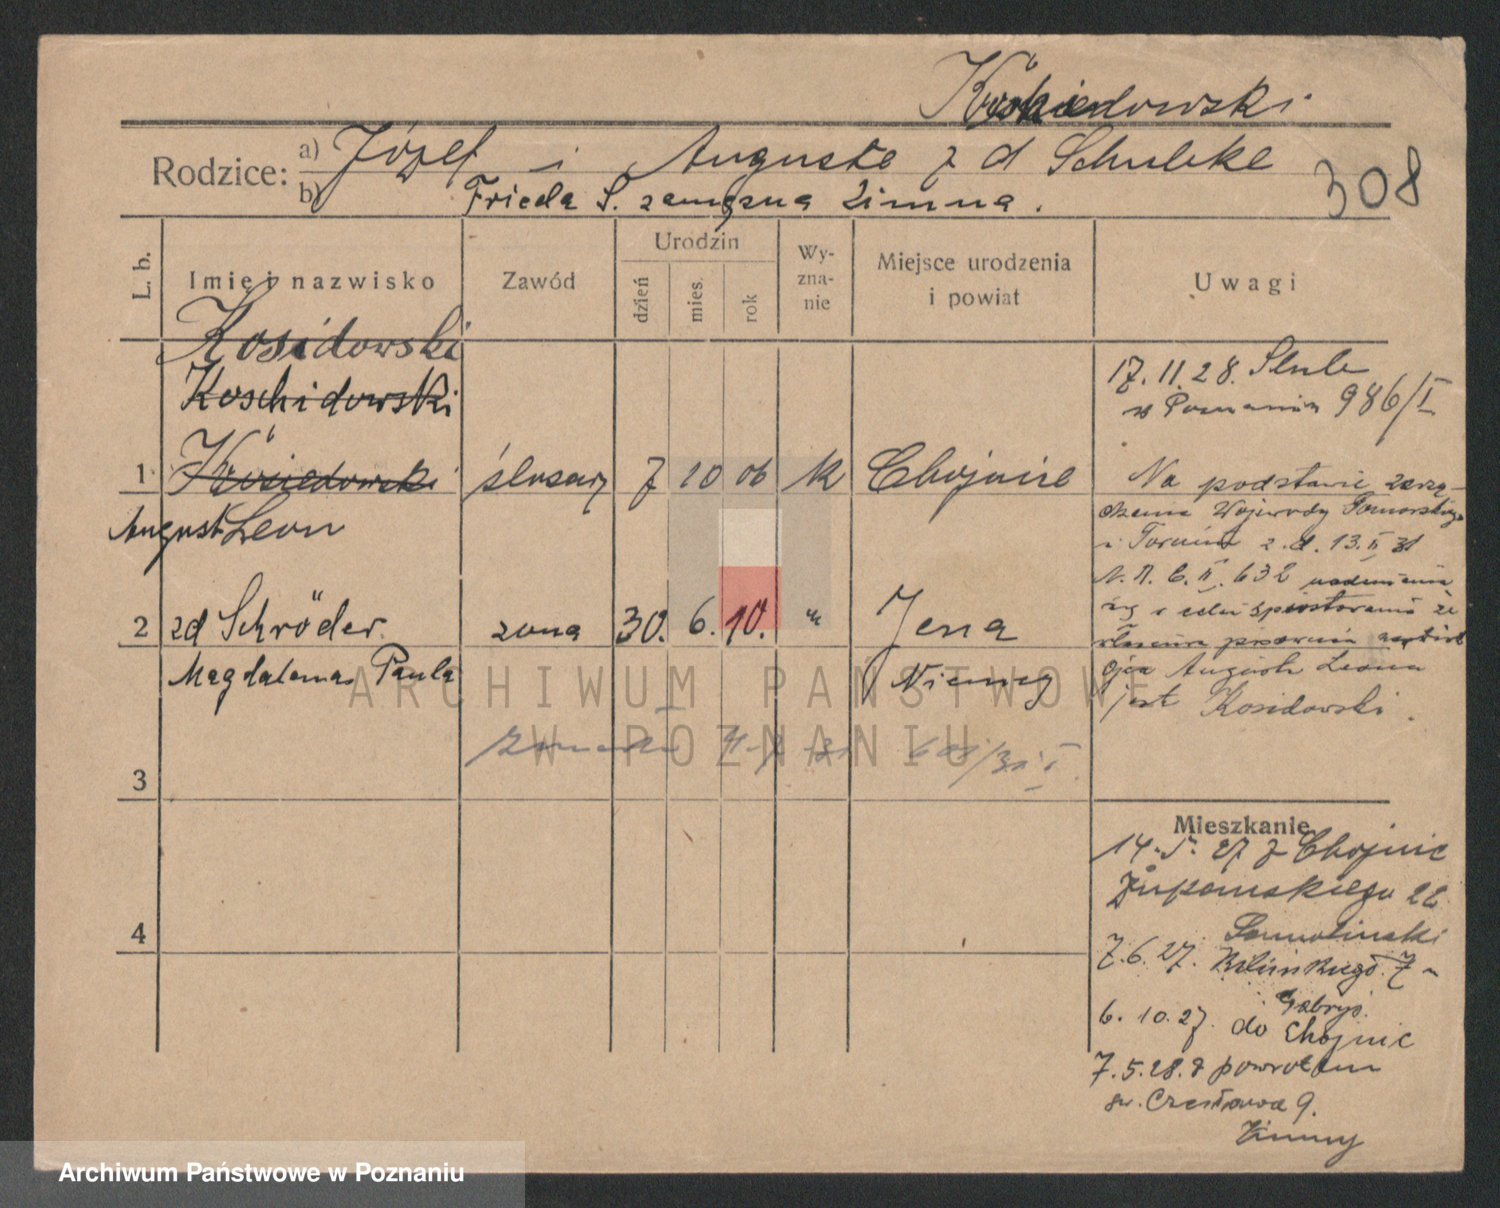 Rodzice: a) Józef i Auguste z d Schulcke
b) Frieda S. zamężna Zimna.
308
L. b.
Imię i nazwisko
Zawód
Urodzin
dzień
mies.
rok
Wy-
zna-
nie
Miejsce urodzenia
i powiat
Uwagi
Kosidowski
Koschidowski
1 Kósiedowski ślusarz 7 10 06 k Chojnice
August Leon
2 zd Schröder żona 30. 6. 10. " Jena
Magdalena Paula Niemcy
3
4
17.11.28. Ślub
w Poznaniu 986/I
Na podstawie zarzą-
dzenia Wojewody Pomorskiego
w Toruniu z d. 13.II 31
632
ojca August Leona
jest Kosidowski.
Mieszkanie
14.5.27 z Chojnic
Żupańskiego 22
7.6.27. Kilińskiego 7
6.10.27. do Chojnic
7.5.28. z powrotem
św. Czesława 9.
Zimny
ARCHIWUM PAŃSTWOWE
W POZNANIU
Archiwum Państwowe w Poznaniu